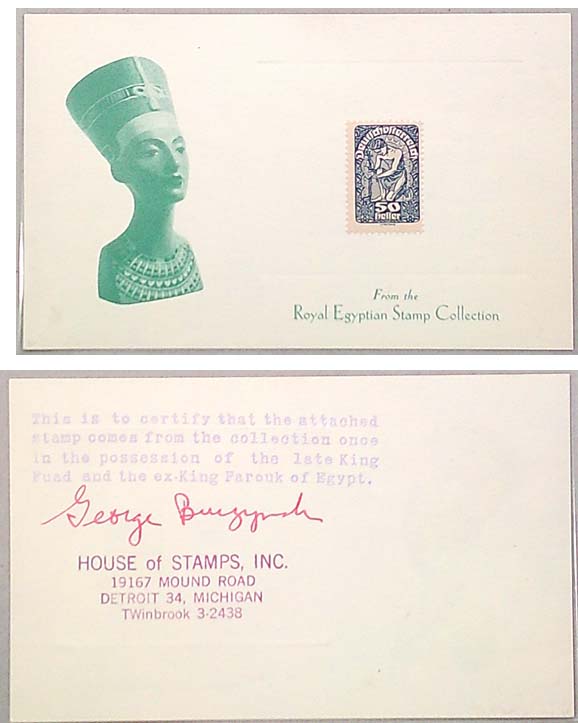 Deutschösterreich
50
heller
From the
Royal Egyptian Stamp Collection
This is to certify that the attached
stamp comes from the collection once
in the possession of the late King
Fuad and the ex-King Farouk of Egypt.
George
HOUSE of STAMPS, INC.
19167 MOUND ROAD
DETROIT 34, MICHIGAN
TWinbrook 3-2438